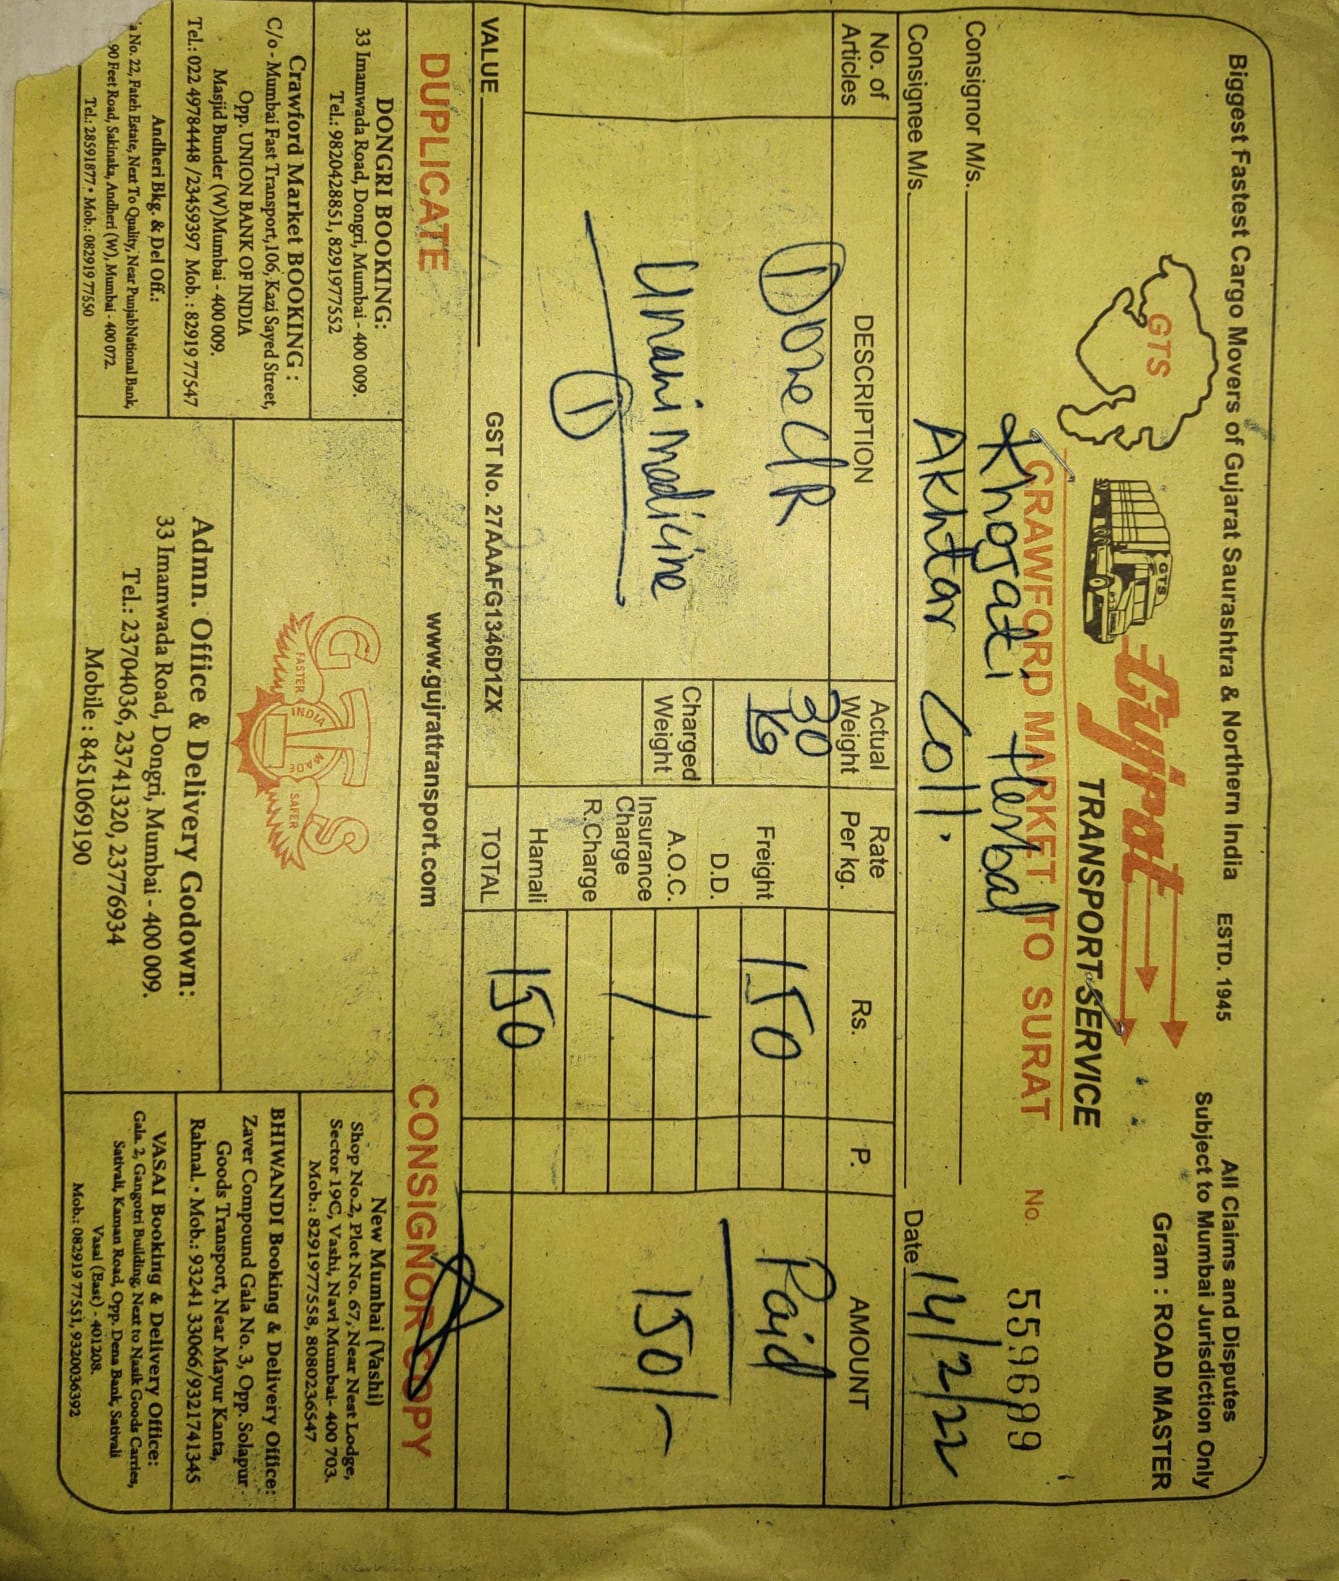 Biggest Fastest Cargo Movers of Gujarat Saurashtra & Northern India ESTD. 1945
All Claims and Disputes
Subject to Mumbai Jurisdiction Only
Gram : ROAD MASTER
GTS
GTS
Gujrat
TRANSPORT SERVICE
CRAWFORD MARKET TO SURAT
No. 559699
Consignor M/s. Khojati Herbal
Consignee M/s. Akhtar Coll.
Date 14/2/22
No. of Articles
DESCRIPTION
Actual Weight
Rate Per kg.
Rs.
P.
AMOUNT
One C/R
30 Kg
Freight
150
Paid
D.D.
Unani Medicine
Charged Weight
A.O.C.
150/-
Insurance Charge
R.Charge
1
Hamali
VALUE
GST No. 27AAAFG1346D1ZX
TOTAL
150
DUPLICATE
www.gujrattransport.com
CONSIGNOR COPY
DONGRI BOOKING:
33 Imamwada Road, Dongri, Mumbai - 400 009.
Tel.: 9820428851, 8291977552
Crawford Market BOOKING :
C/o - Mumbai Fast Transport,106, Kazi Sayed Street,
Opp. UNION BANK OF INDIA
Masjid Bunder (W)Mumbai - 400 009.
Tel.: 022 49784448 /23459397 Mob. : 82919 77547
Andheri Bkg. & Del Off.:
No. 22, Fateh Estate, Next To Quality, Near PunjabNational Bank,
90 Feet Road, Sakinaka, Andheri (W), Mumbai - 400 072.
Tel.: 28591877 • Mob.: 082919 77550
GTS
FASTER
INDIA
MADE
SAFER
Admn. Office & Delivery Godown:
33 Imamwada Road, Dongri, Mumbai - 400 009.
Tel.: 23704036, 23741320, 23776934
Mobile : 8451069190
New Mumbai (Vashi)
Shop No.2, Plot No. 67, Near Nest Lodge,
Sector 19C, Vashi, Navi Mumbai- 400 703.
Mob.: 8291977558, 8080236547
BHIWANDI Booking & Delivery Office:
Zaver Compound Gala No. 3, Opp. Solapur
Goods Transport, Near Mayur Kanta,
Rahnal. • Mob.: 93241 33066/9321741345
VASAI Booking & Delivery Office:
Gala. 2, Gangotri Building, Next to Naaik Goods Carries,
Sativali, Kaman Road, Opp. Dena Bank, Sativali
Vasai (East) - 401208.
Mob.: 082919 77551, 9320036392